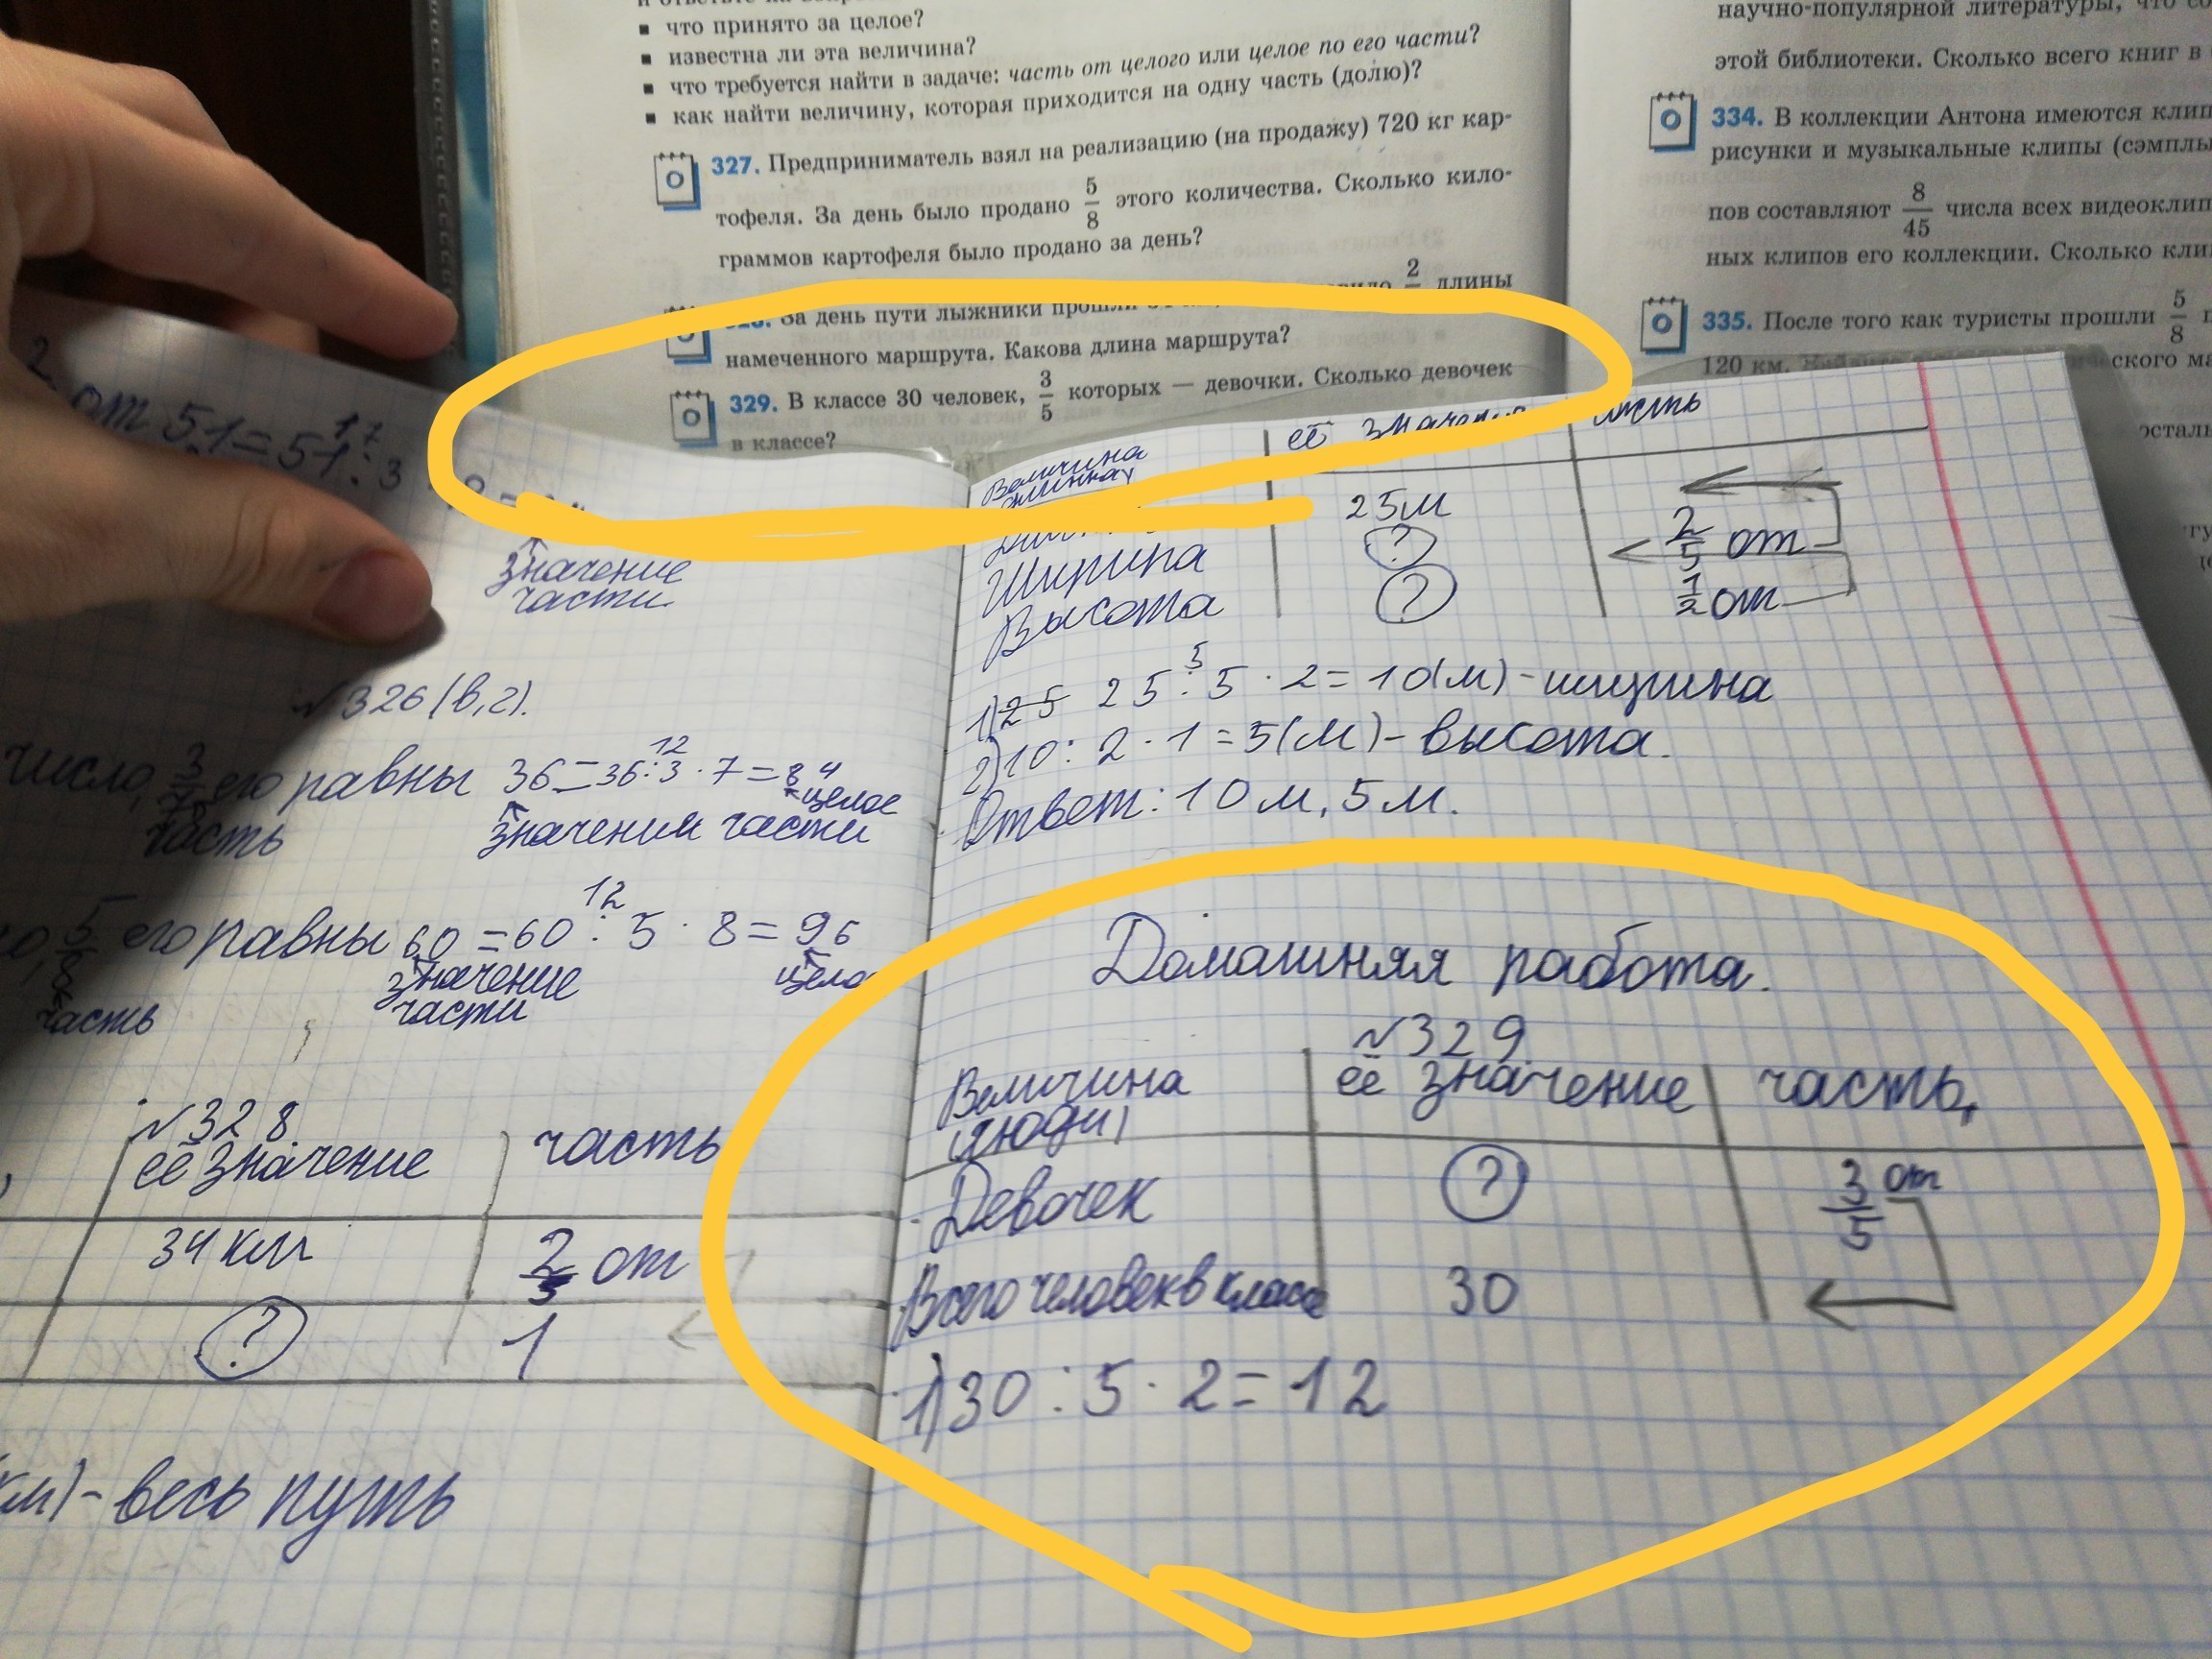 что принято за целое?
известна ли эта величина?
что требуется найти в задаче: часть от целого или целое по его части?
как найти величину, которая приходится на одну часть (долю)?
327. Предприниматель взял на реализацию (на продажу) 720 кг кар-
тофеля. За день было продано 5/8 этого количества. Сколько кило-
граммов картофеля было продано за день?
За день пути лыжники прошли 2 длины
намеченного маршрута. Какова длина маршрута?
329. В классе 30 человек, 3/5 которых — девочки. Сколько девочек
в классе?
научно-популярной литературы, что
этой библиотеки. Сколько всего книг в
334. В коллекции Антона имеются
рисунки и музыкальные клипы
пов составляют 8/45 числа всех
ных клипов его коллекции. Сколько
335. После того как туристы прошли 5/8
120 км.
2
от 51 = 51 : 3
17
значение
части.
№326(в,г).
число, 3/7 его равны 36 = 36 : 3 · 7 = 84
12
часть
значении части
целое
5/8 его равны 60 = 60 : 5 · 8 = 96
12
часть
значение
части
№328.
её значение
часть
34 км
2/3 от
?
1
км) - весь путь
Величина
её
часть
25м
Ширина
?
2/5 от
Высота
?
1/2 от
1) 25 25 : 5 · 2 = 10(м) - ширина
5
2) 10 : 2 · 1 = 5(м) - высота.
Ответ: 10 м, 5 м.
Домашняя работа.
№329.
Величина
(люди)
её значение
часть,
Девочек
?
3/5 от
Всего человек в классе
30
1) 30 : 5 · 2 = 12